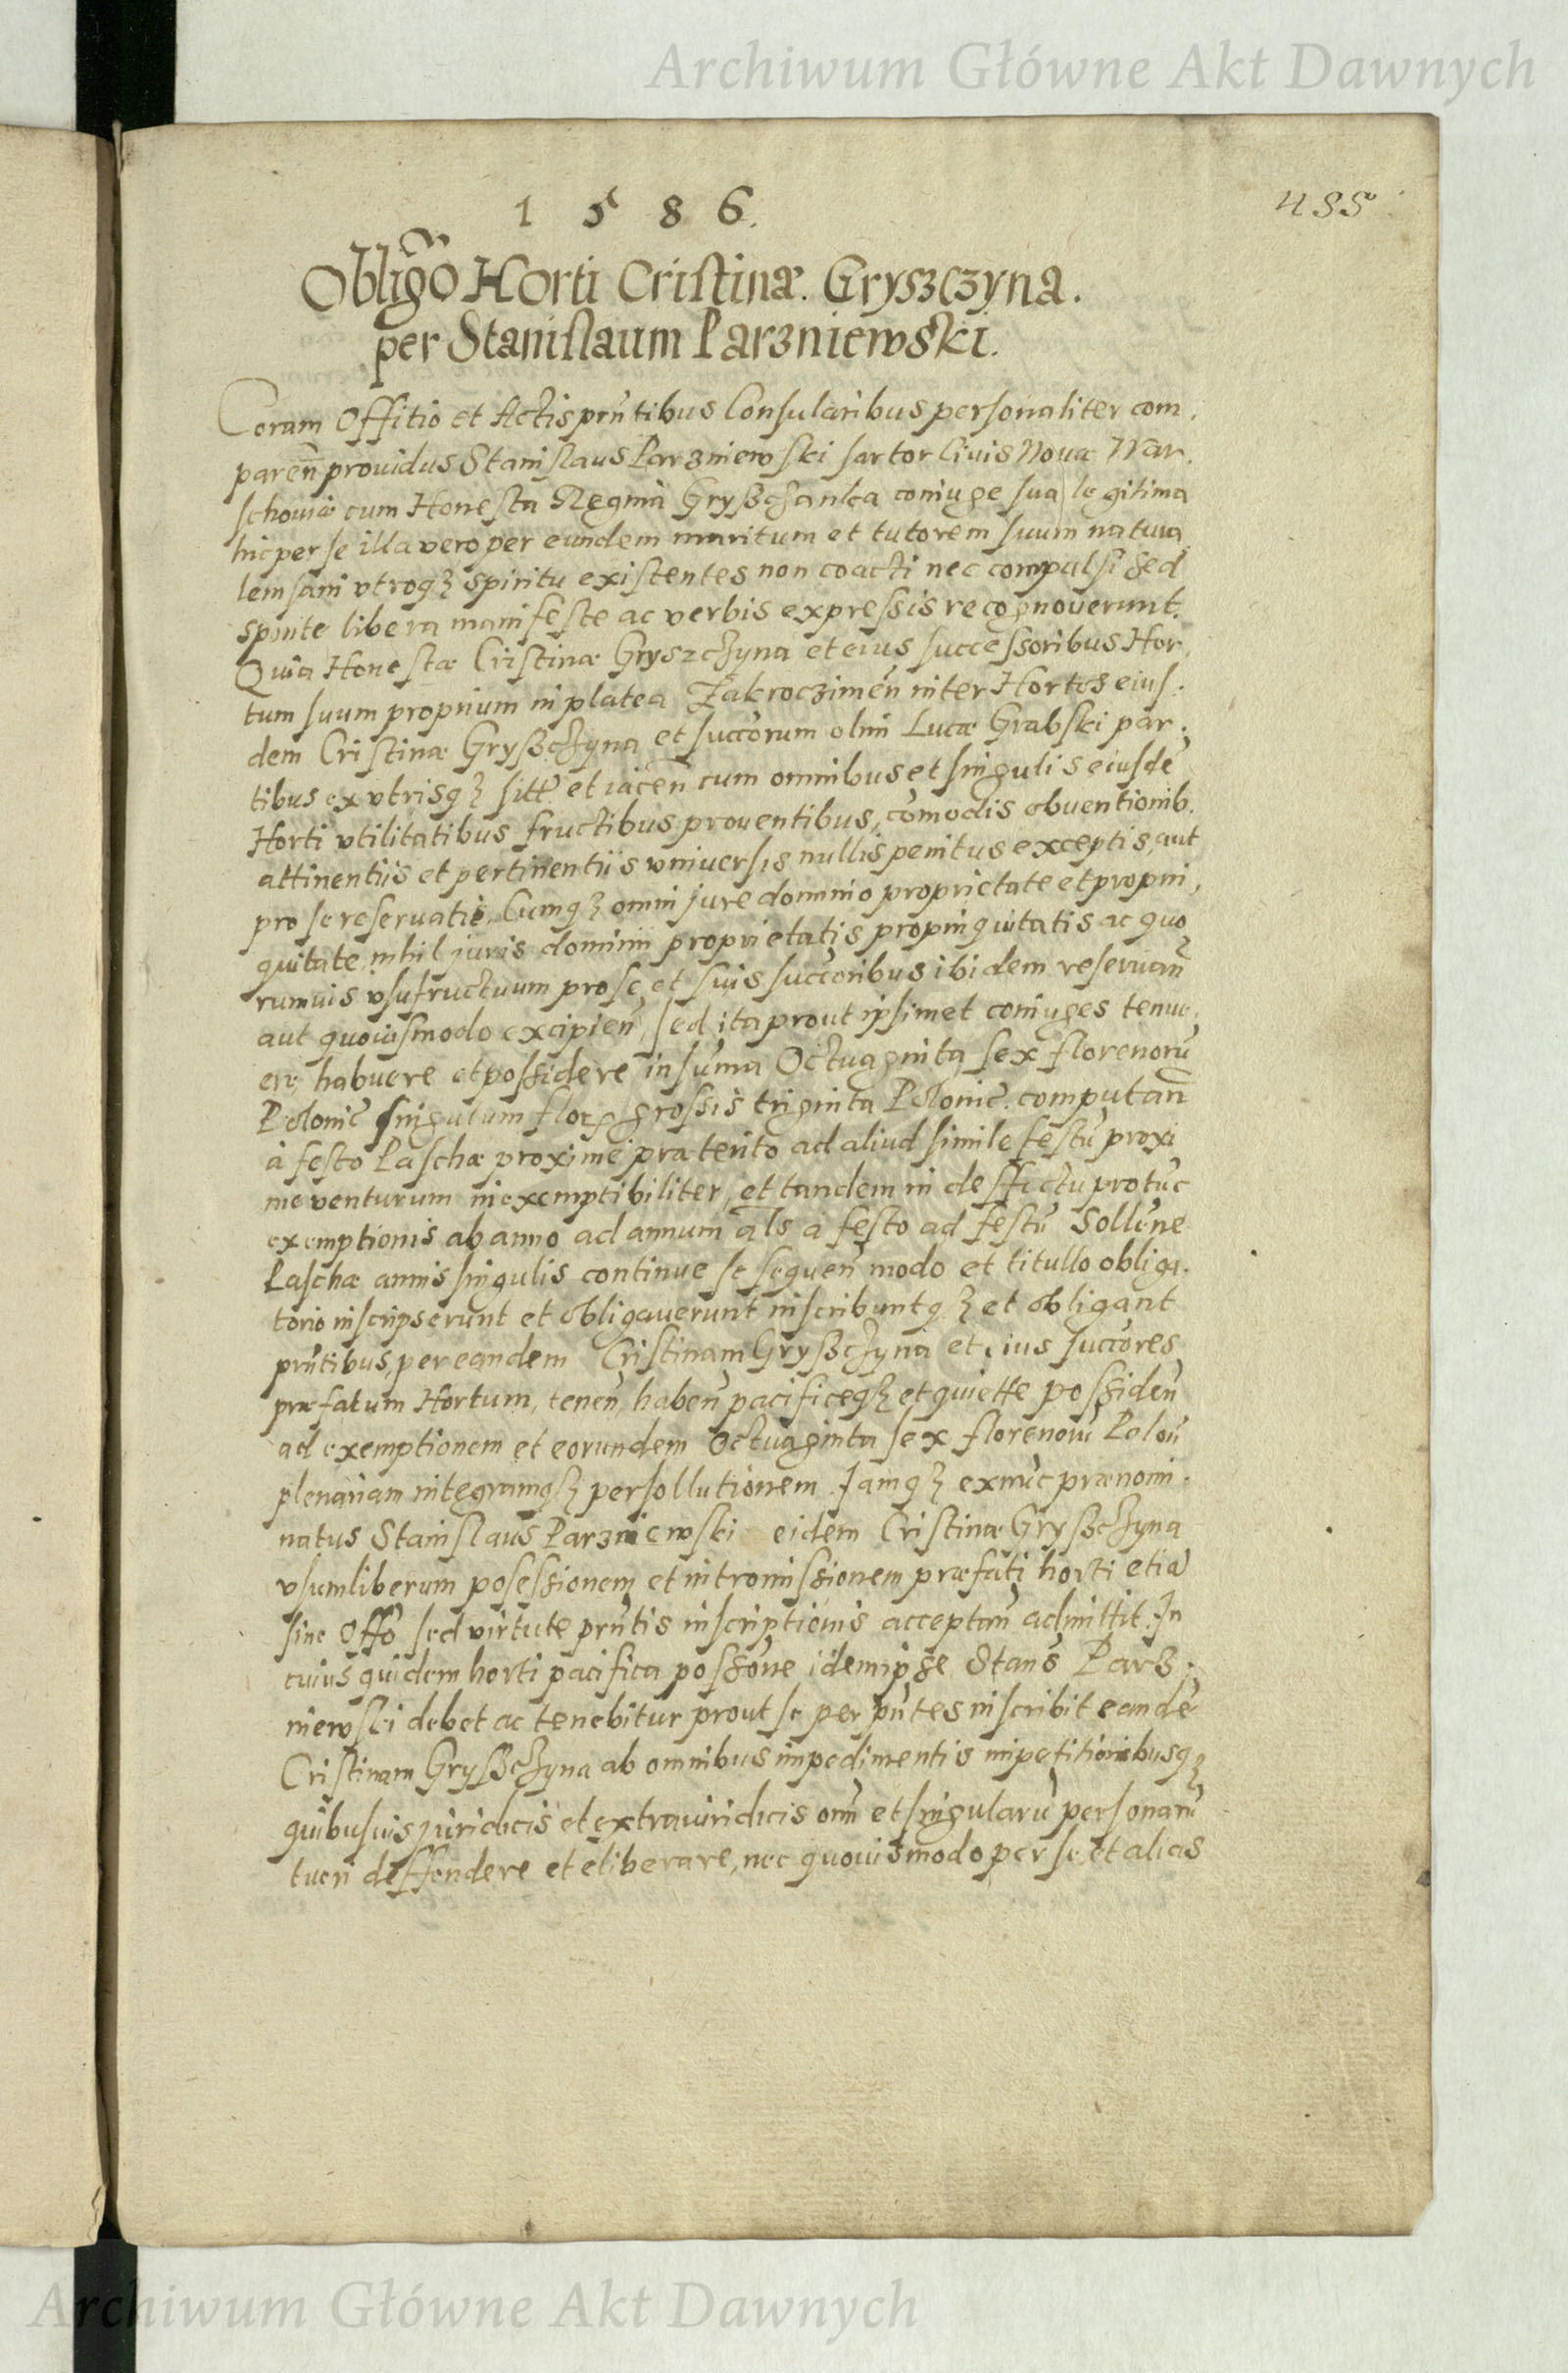 Archiwum Główne Akt Dawnych
1 5 8 6.
455
Obligo Horti Cristinæ. Gryszczyna.
per Stanislaum Parzniewski.
Coram Offitio et Actis prñtibus Consularibus personaliter com.
pareñ prouidus Stanislaus Parzniewski sartor Ciuis Nouæ War.
schouiæ cum Honesta Regina Gryßczanka coniuge sua legitima
hic per se illa vero per eundem maritum et tutorem suum natura
lem sani vtroqȝ spiritu existentes non coacti nec compulsi sed
sponte libera manifeste ac verbis expressis recognouerunt.
Quia Honestæ Cristinæ Gryszczyna et eius successoribus Hor,
tum suum proprium in platea Zakroczimeñ inter Hortos eius.
dem Cristinæ Gryßczyna et succorum olim Lucæ Grabski par.
tibus ex vtrisqȝ sitt et iaceñ cum omnibus et singulis eiusdē
Horti vtilitatibus fructibus prouentibus, cōmodis obuentionib.
attinentiis et pertinentiis vniuersis nullis penitus exceptis, aut
pro se reseruatis. Cumqȝ omni jure dominio proprietate et propin,
quitate nihil juris dominii proprietatis propinquitatis ac quo
rumuis vsufructuum pro se et suis succoribus ibidem reseruañ
aut quouismodo excipieñ, sed ita prout ipsimet coniuges tenue,
ere habuere et possidere in sūma Octuaginta sex florenorū
Polonic singulum flor. grossis triginta Polonic. computañ
à festo Paschæ proxime præterito ad aliud simile festū proxi
me venturum inexemptibiliter, et tandem in deffectu protūc
exemptionis ab anno ad annum als à festo ad festū Sollēne
Paschæ annis singulis continue se sequeñ modo et titullo obliga.
torio inscripserunt et obligauerunt inscribuntqȝ et obligant
prñtibus, per eandem Cristinam Gryßczyna et eius succores
præfatum Hortum, teneñ, habeñ pacificeqȝ et quiette possideñ
ad exemptionem et eorundem Octuaginta sex florenorū Poloñ
plenariam integramqȝ persollutionem. Jamqȝ exnūc prænomi.
natus Stanislaus Parzniewski eidem Cristinæ Gryßczyna
vsum liberum posessionem et intromissionem præfati horti etiā
sine Offo sed virtute prñtis inscriptionis acceptañ admittit. In
cuius quidem horti pacifica possōne idem ipse Stans Parz.
niewski debet ac tenebitur prout se per pñtes inscribit eandē
Cristinam Gryßczyna ab omnibus impedimentis impetitionibusqȝ
quibusuis juridicis et extrajuridicis oniu et singularū personarū
tueri deffendere et eliberare, nec quouismodo per se et alias
Archiwum Główne Akt Dawnych